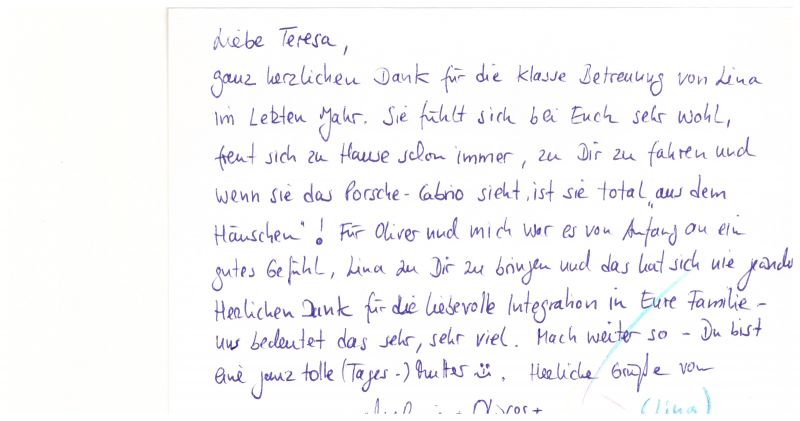 Liebe Teresa,
ganz herzlichen Dank für die klasse Betreuung von Lina
im Letzten Jahr. Sie fühlt sich bei Euch sehr wohl,
freut sich zu Hause schon immer, zu Dir zu fahren und
wenn sie das Porsche-Cabrio sieht, ist sie total „aus dem
Häuschen"! Für Oliver und mich war es von Anfang an ein
gutes Gefühl, Lina zu Dir zu bringen und das hat sich nie
Herzlichen Dank für die liebevolle Integration in Eure Familie -
uns bedeutet das sehr, sehr viel. Mach weiter so - Du bist
eine ganz tolle (Tages-) Mutter ü. Herzliche Grüße von
(Lina)